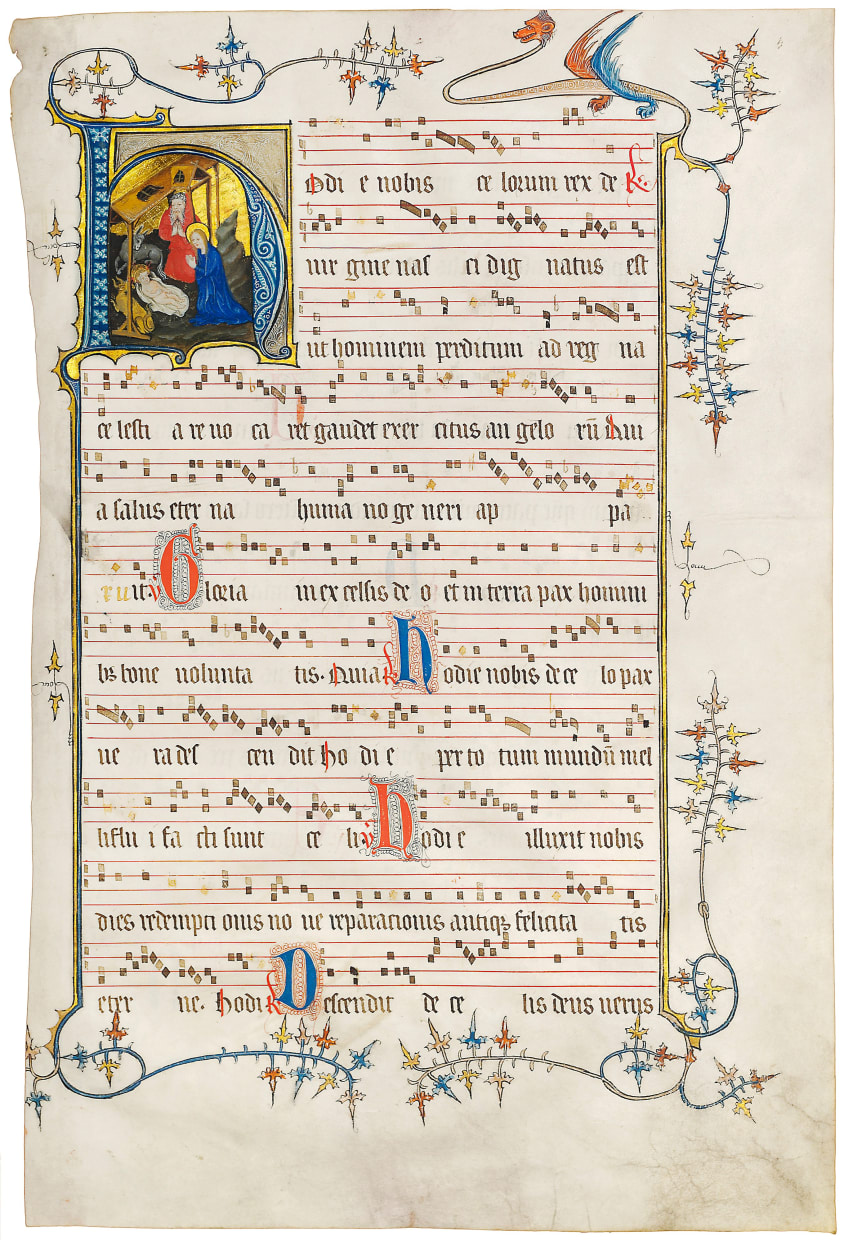 Hodi e nobis ce lorum rex de
uir gine nas ci dig natus est
ut hominem perditum ad reg na
ce lesti a re uo ca ret gaudet exer citus an gelo rū Qui
a salus eter na huma no ge neri ap pa
ruit Gloria in ex celsis de o et in terra pax homini
bus bone uolunta tis. Quia Hodie nobis de ce lo pax
ue ra des cen dit ho di e per to tum mundū mel
liflu i fa cti sunt ce li Hodi e illuxit nobis
dies redempti onis no ue reparacionis antiqȝ felicita tis
eter ne. hodi Descendit de ce lis deus uerus